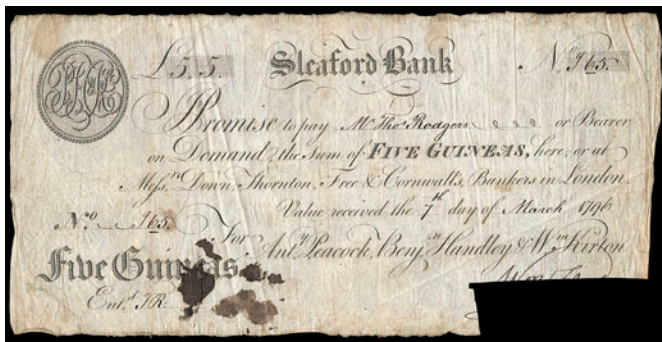 £5.5. Sleaford Bank No. I65.
I Promise to pay Mr. Thos. Rodgers or Bearer
on Demand, the Sum of FIVE GUINEAS, here, or at
Messrs. Down, Thornton, Free & Cornwalls, Bankers in London
Value received the 7th day of March 1796
No. I65.
For Anty. Peacock, Benjn. Handley & Wm. Kirton
Five Guineas.
Entd. JR.